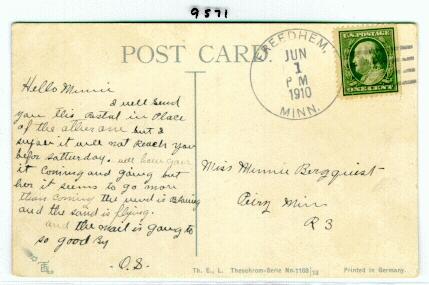 9571
POST CARD
FREEDHEM,
JUN
1
P M
1910
MINN.
U.S. POSTAGE
ONE CENT
Hello Minnie
I will send
you this Postal in Place
of the other one but I
it will not Reach you
befor Satturday.
it Coming and going but
her it seems to go more
than coming the wind is Blowing
and the sand is flying.
and the mail is going to
so good By
-O.S.-
Miss Minnie Bergquist
Minn
R 3
Th. E., L. Theochrom-Serie No. 1168
Printed in Germany.